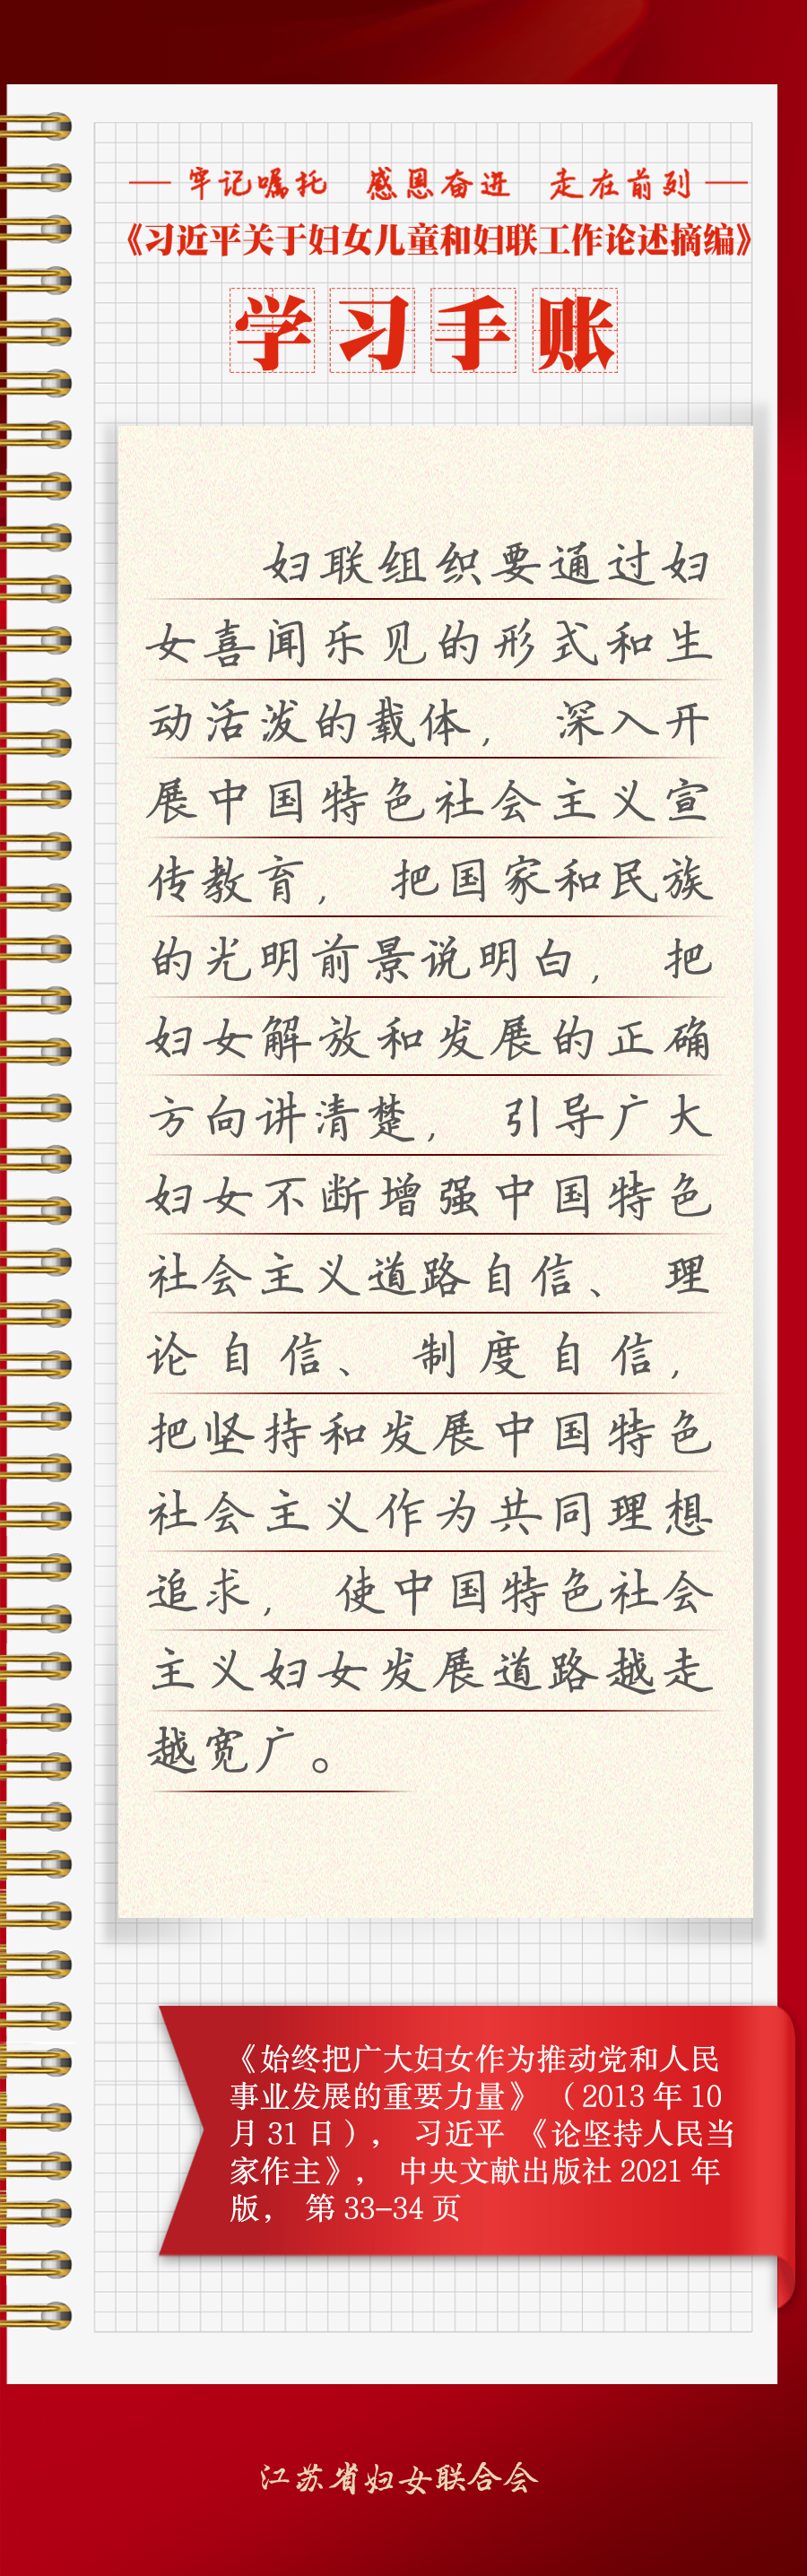 牢记嘱托 感恩奋进 走在前列
《习近平关于妇女儿童和妇联工作论述摘编》
学习手账
妇联组织要通过妇
女喜闻乐见的形式和生
动活泼的载体， 深入开
展中国特色社会主义宣
传教育， 把国家和民族
的光明前景说明白， 把
妇女解放和发展的正确
方向讲清楚， 引导广大
妇女不断增强中国特色
社会主义道路自信、 理
论自信、 制度自信，
把坚持和发展中国特色
社会主义作为共同理想
追求， 使中国特色社会
主义妇女发展道路越走
越宽广。
《始终把广大妇女作为推动党和人民
事业发展的重要力量》（2013 年 10
月 31 日）， 习近平 《论坚持人民当
家作主》， 中央文献出版社 2021 年
版， 第 33-34 页
江苏省妇女联合会